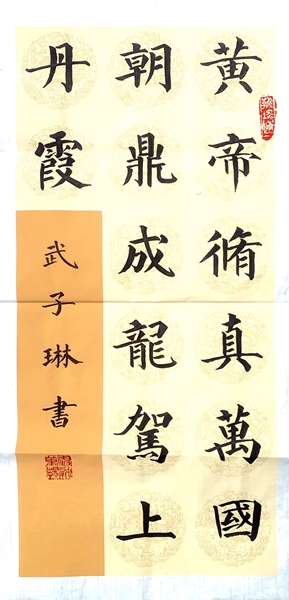 黃帝脩真萬國
朝鼎成龍駕上
丹霞
武子琳書